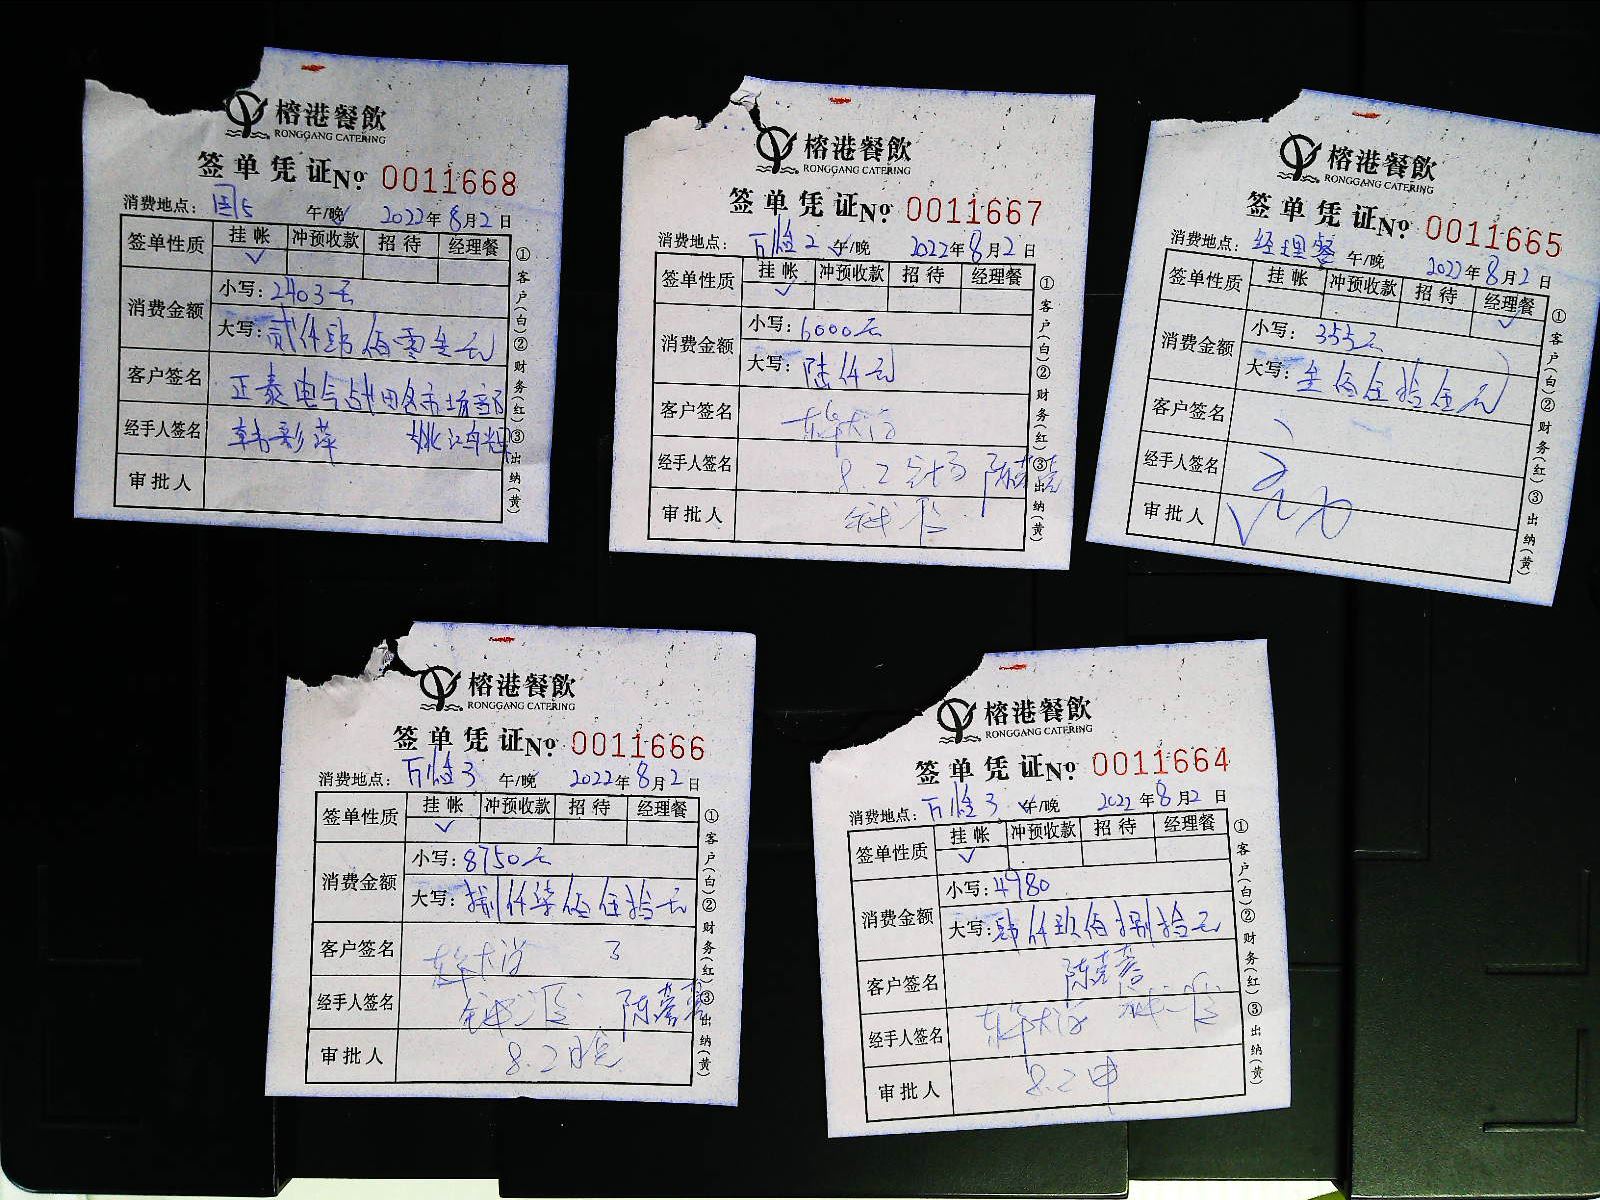 榕港餐飲
RONGGANG CATERING
签单凭证No: 0011668
消费地点: 国5 午/晚 2022年8月2日
签单性质 挂帐 冲预收款 招待 经理餐
✓
消费金额 小写: 2403元
大写: 贰仟肆佰零叁元
客户签名 正泰电气
经手人签名 韩彩萍 姚鸿辉
审批人
①客户(白)②财务(红)③出纳(黄)
榕港餐飲
RONGGANG CATERING
签单凭证No: 0011667
消费地点: 2 午/晚 2022年8月2日
签单性质 挂帐 冲预收款 招待 经理餐
✓
消费金额 小写: 6000元
大写: 陆仟元
客户签名
经手人签名 8.2
审批人
①客户(白)②财务(红)③出纳(黄)
榕港餐飲
RONGGANG CATERING
签单凭证No: 0011665
消费地点: 经理餐 午/晚 2022年8月2日
签单性质 挂帐 冲预收款 招待 经理餐
✓
消费金额 小写: 355元
大写: 叁佰伍拾伍元
客户签名
经手人签名
审批人
①客户(白)②财务(红)③出纳(黄)
榕港餐飲
RONGGANG CATERING
签单凭证No: 0011666
消费地点: 3 午/晚 2022年8月2日
签单性质 挂帐 冲预收款 招待 经理餐
✓
消费金额 小写: 8750元
大写: 捌仟柒佰伍拾元
客户签名 3
经手人签名
审批人 8.2晚
①客户(白)②财务(红)③出纳(黄)
榕港餐飲
RONGGANG CATERING
签单凭证No: 0011664
消费地点: 3 午/晚 2022年8月2日
签单性质 挂帐 冲预收款 招待 经理餐
✓
消费金额 小写: 4980
大写: 肆仟玖佰捌拾元
客户签名
经手人签名
审批人 8.2中
①客户(白)②财务(红)③出纳(黄)